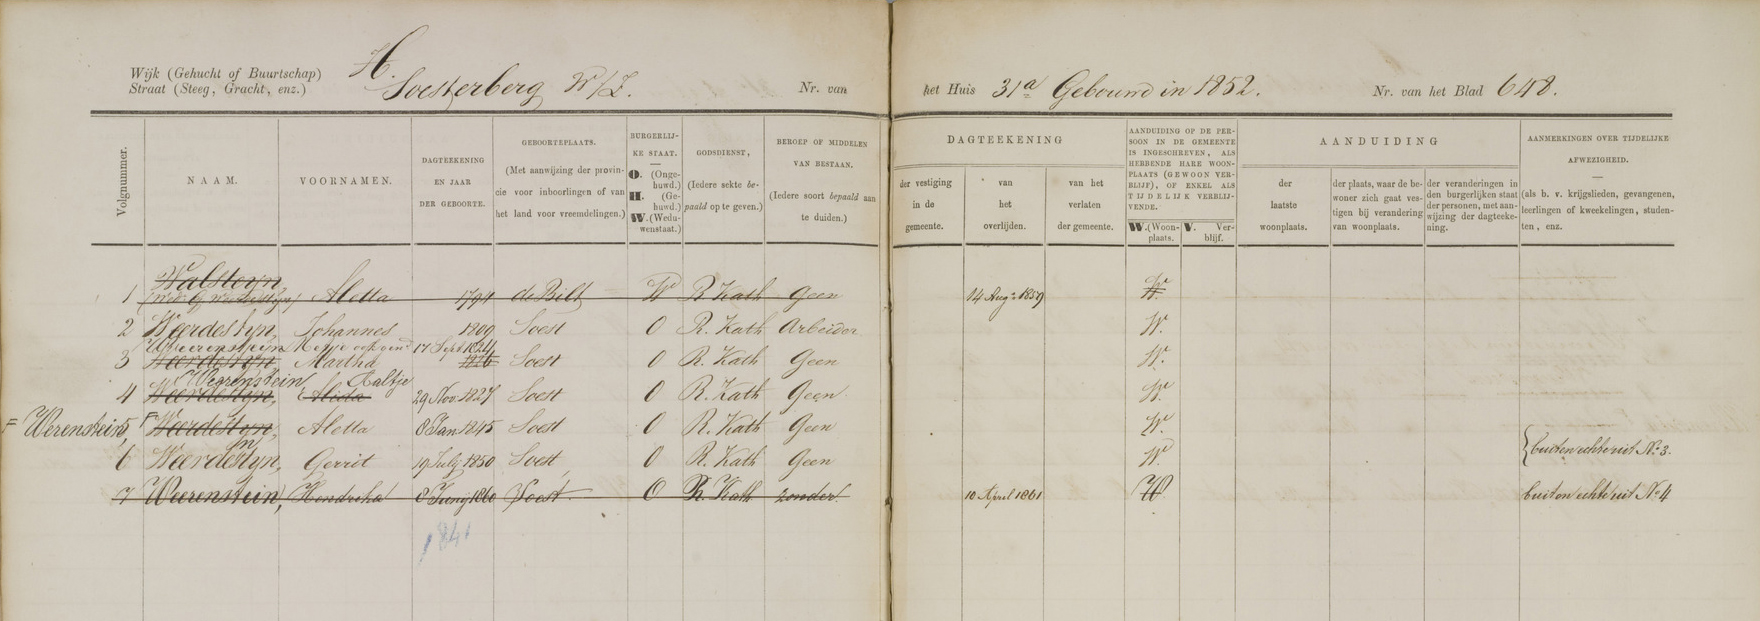 Wijk (Gehucht of Buurtschap)
Straat (Steeg, Gracht, enz.)
H.
Soesterberg W/Z.
Nr. van
het Huis 31a Gebouwd in 1852.
Nr. van het Blad 648.
Volgnummer.
NAAM.
VOORNAMEN.
DAGTEEKENING
EN JAAR
DER GEBOORTE.
GEBOORTEPLAATS.
(Met aanwijzing der provin-
cie voor inboorlingen of van
het land voor vreemdelingen.)
BURGERLIJ-
KE STAAT.
O. (Onge-
huwd.)
H. (Ge-
huwd.)
W. (Wedu-
wenstaat.)
GODSDIENST,
(Iedere sekte be-
paald op te geven.)
BEROEP OF MIDDELEN
VAN BESTAAN.
(Iedere soort bepaald aan
te duiden.)
DAGTEEKENING
der vestiging
in de
gemeente.
van
het
overlijden.
van het
verlaten
der gemeente.
AANDUIDING OP DE PER-
SOON IN DE GEMEENTE
IS INGESCHREVEN, ALS
HEBBENDE HARE WOON-
PLAATS (GEWOON VER-
BLIJF), OF ENKEL ALS
TIJDELIJK VERBLIJ-
VENDE.
W. (Woon-
plaats.
V. Ver-
blijf.
AANDUIDING
der
laatste
woonplaats.
der plaats, waar de be-
woner zich gaat ves-
tigen bij verandering
van woonplaats.
der veranderingen in
den burgerlijken staat
der personen, met aan-
wijzing der dagteeke-
ning.
AANMERKINGEN OVER TIJDELIJKE
AFWEZIGHEID.
(als b. v. krijgslieden, gevangenen,
leerlingen of kweekelingen, studen-
ten, enz.
Walsteyn
1 Aletta 1794 de Bilt W R Kath Geen 14 Augs 1859 W
2 Weerdestyn Johannes 1809 Soest O R. Kath Arbeider W.
Weerenstein 17 Sept 1824
3 Weerdestyn Martha 1826 Soest O R. Kath Geen W.
Weerenstein Aaltje
4 Weerdestyn, Alida 29 Nov. 1827 Soest O R. Kath Geen. W.
F Werenstein, 5 F Weerdestyn, Aletta 8 Jan 1845 Soest O R. Kath Geen W
6 Weerdestyn, Gerrit 19 July 1850 Soest O R. Kath Geen W. buiten echte uit No. 3.
7 Weerenstein, Hendrika 8 Juny 1860 Soest O R. Kath zonder 10 April 1861 W buiten echte uit No 4
1841